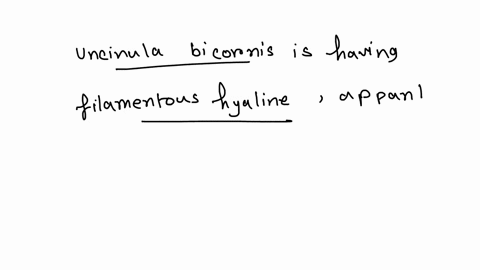 uncinula bicornis is having
filamentous hyaline , appanl